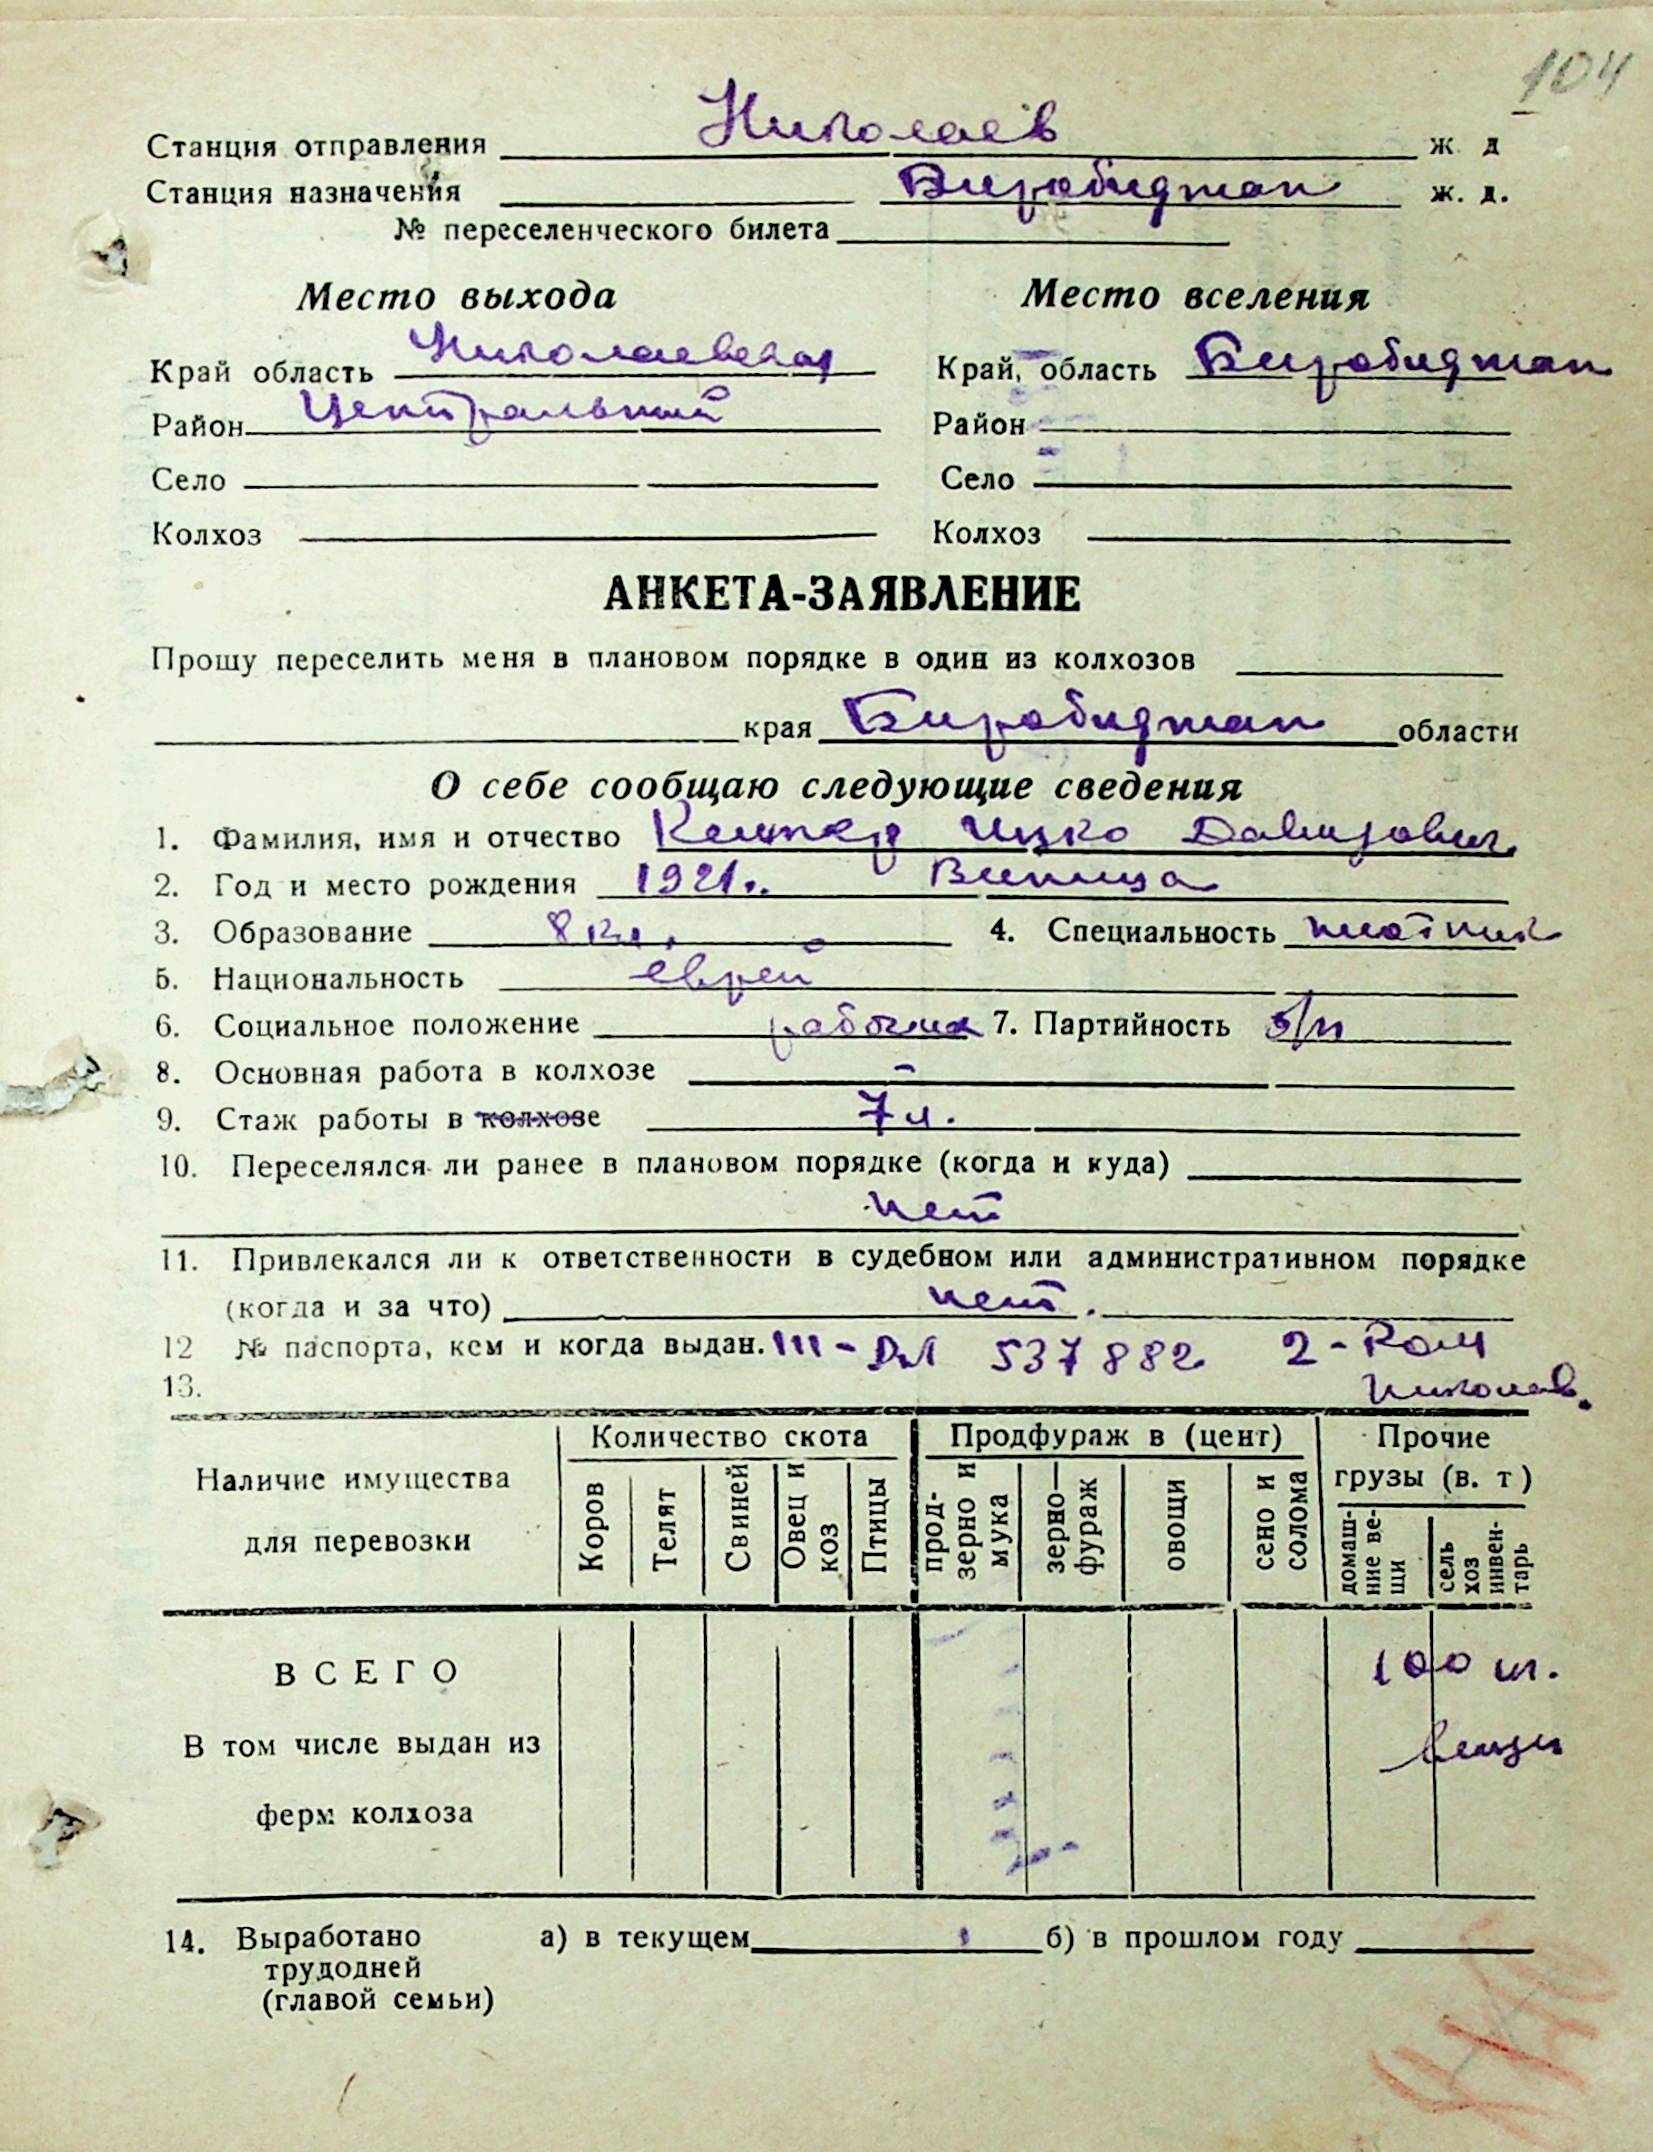 104
Станция отправления Николаев ж д
Станция назначения Биробиджан ж. д.
№ переселенческого билета
Место выхода Место вселения
Край область Николаевская Край, область Биробиджан
Район Центральный Район
Село Село
Колхоз Колхоз
АНКЕТА-ЗАЯВЛЕНИЕ
Прошу переселить меня в плановом порядке в один из колхозов
края Биробиджан области
О себе сообщаю следующие сведения
1. Фамилия, имя и отчество Ицко Давидович
2. Год и место рождения 1921 г. Винница
3. Образование 8 кл. 4. Специальность плотник
5. Национальность еврей
6. Социальное положение рабочий 7. Партийность б/п
8. Основная работа в колхозе -
9. Стаж работы в колхозе 7 л.
10. Переселялся ли ранее в плановом порядке (когда и куда)
нет
11. Привлекался ли к ответственности в судебном или административном порядке
(когда и за что) нет.
12 № паспорта, кем и когда выдан. III-ДЛ 537882 2-
13. Николаев.
Наличие имущества для перевозки
Количество скота
Коров
Телят
Свиней
Овец и коз
Птицы
Продфураж в (цент)
прод-
зерно и
мука
зерно—
фураж
овощи
сено и
солома
Прочие
грузы (в. т)
домаш-
ние ве-
щи
сель
хоз
инвен-
тарь
ВСЕГО 100 кг.
В том числе выдан из вещи
ферм колхоза
14. Выработано а) в текущем б) в прошлом году
трудодней
(главой семьи)